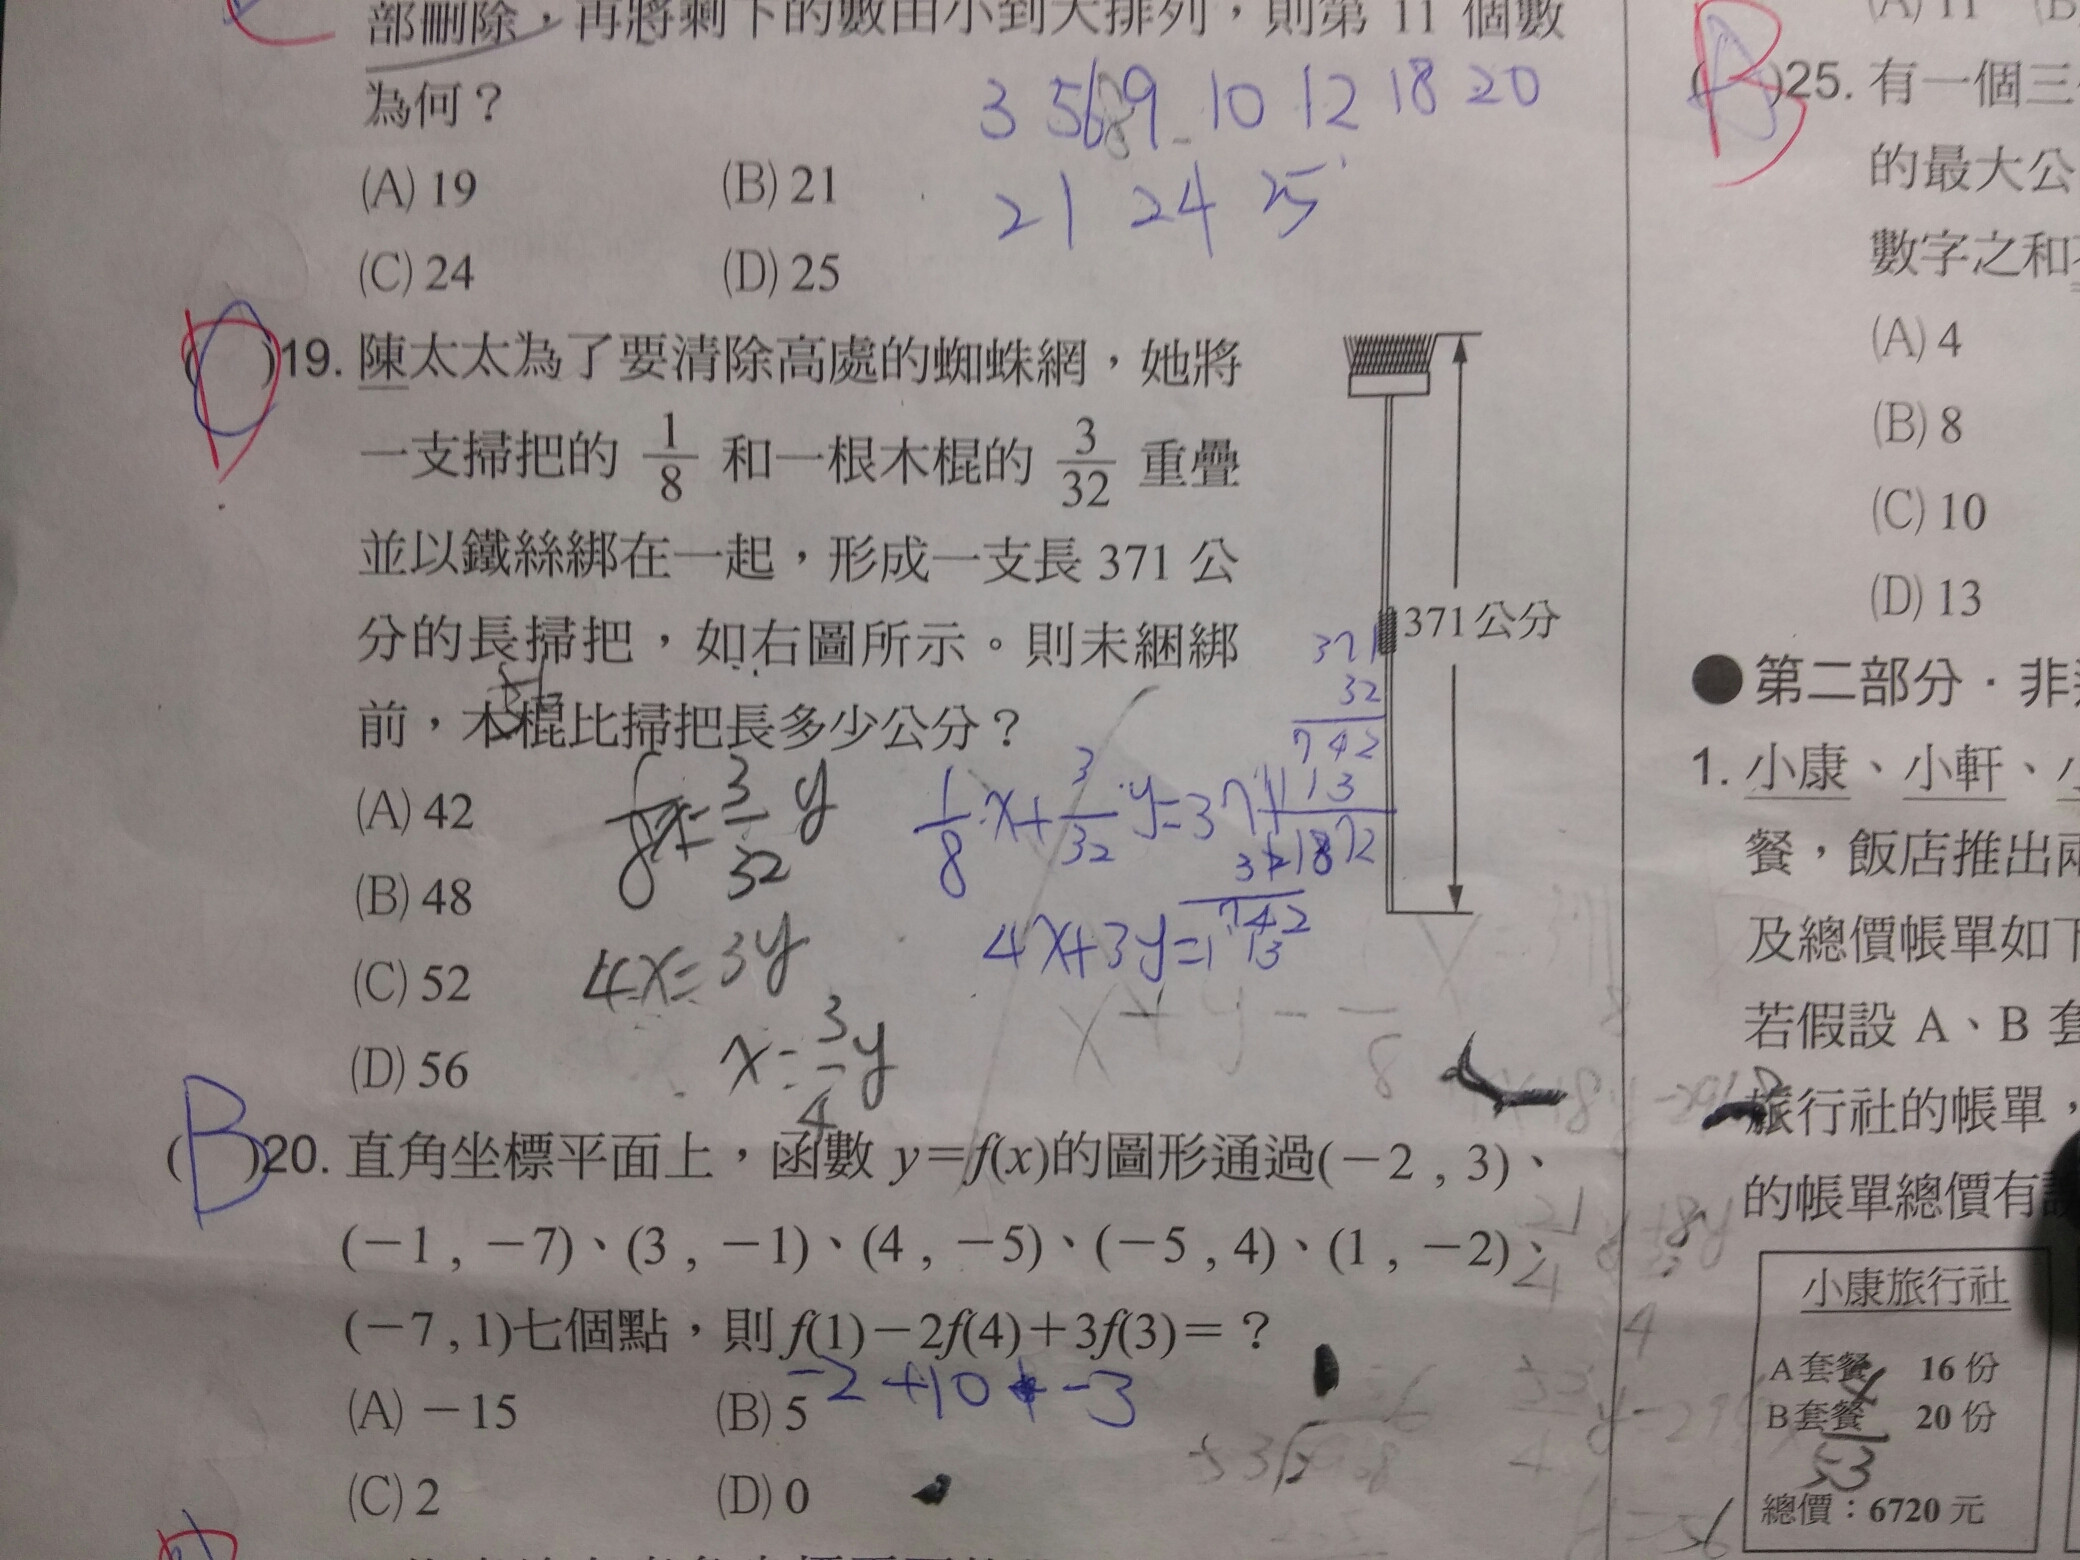 部刪除,再將剩下的數由小到大排列,則第 11 個數
為何?
3 5 6 8 9 10 12 18 20
21 24 25
(A) 19 (B) 21
(C) 24 (D) 25
( )19. 陳太太為了要清除高處的蜘蛛網,她將
一支掃把的 1/8 和一根木棍的 3/32 重疊
並以鐵絲綁在一起,形成一支長 371 公
分的長掃把,如右圖所示。則未綑綁
前,木棍比掃把長多少公分?
371公分
(A) 42
(B) 48
(C) 52
(D) 56
1/8 x = 3/32 y
4x = 3y
x = 3/4 y
1/8 x + 3/32 y = 371
4x+3y=1
371
32
742
1113
11872
742
13
(B)20. 直角坐標平面上,函數 y=f(x)的圖形通過(-2 , 3)、
(-1 , -7)、(3 , -1)、(4 , -5)、(-5 , 4)、(1 , -2)、
(-7 , 1)七個點,則 f(1)-2f(4)+3f(3)=?
-2 +10 + -3
(A) -15 (B) 5
(C) 2 (D) 0
(A) 11
B )25. 有一個三
的最大公
數字之和
(A) 4
(B) 8
(C) 10
(D) 13
●第二部分.非
1. 小康、小軒、
餐,飯店推出
及總價帳單如下
若假設 A、B 套
旅行社的帳單,
的帳單總價有
小康旅行社
A 套餐 16 份
B 套餐 20 份
總價:6720 元